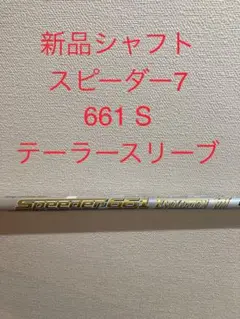 新品シャフト
スピーダー7
661 S
テーラースリーブ
Speeder 661 Evolution VII